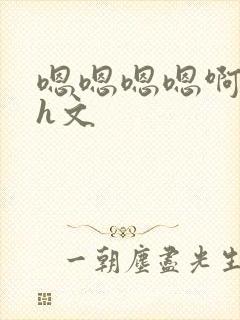 嗯嗯嗯嗯啊
h文
一朝塵盡光生